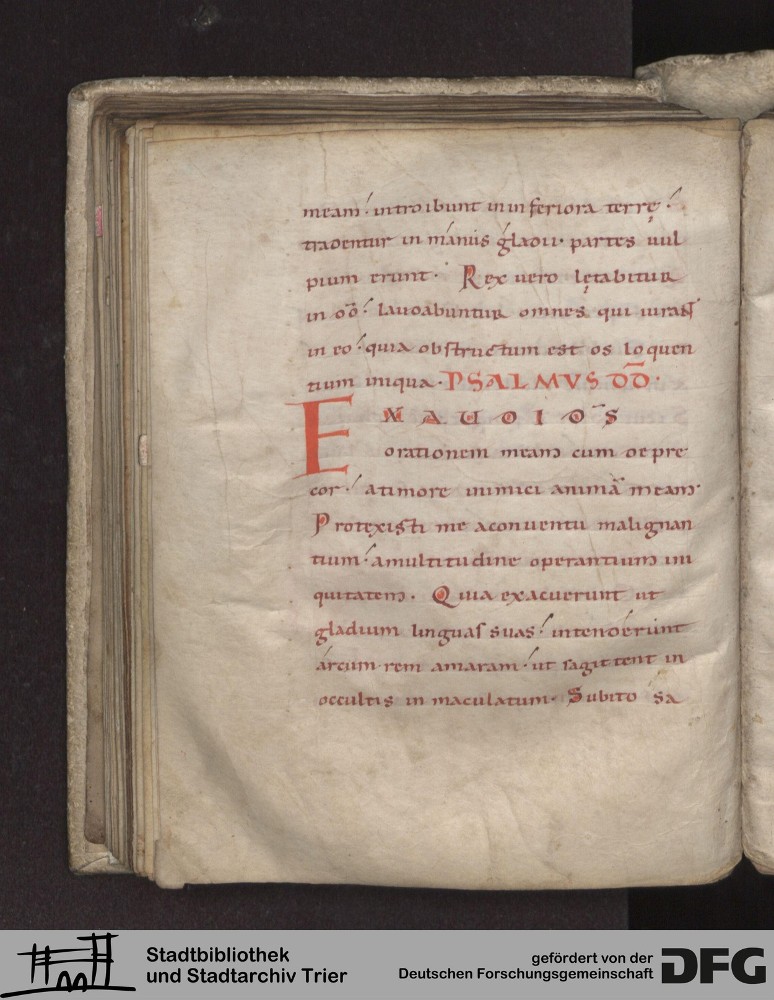 meam; introibunt in inferiora terrę;
tradentur in manus gladii. partes uul
pium erunt. Rex uero lętabitur
in dō; laudabuntur omnes qui iurant
in eo; quia obstructum est os loquen
tium iniqua. PSALMVS DD̄.
EXAUDI DS̄
orationem meam cum depre
cor; a timore inimici animā meam.
Protexisti me a conuentu malignan
tium; a multitudine operantium ini
quitatem. Quia exacuerunt ut
gladium linguas suas; intenderunt
arcum rem amaram; ut sagittent in
occultis inmaculatum. Subito sa
Stadtbibliothek
und Stadtarchiv Trier
gefördert von der
Deutschen Forschungsgemeinschaft
DFG